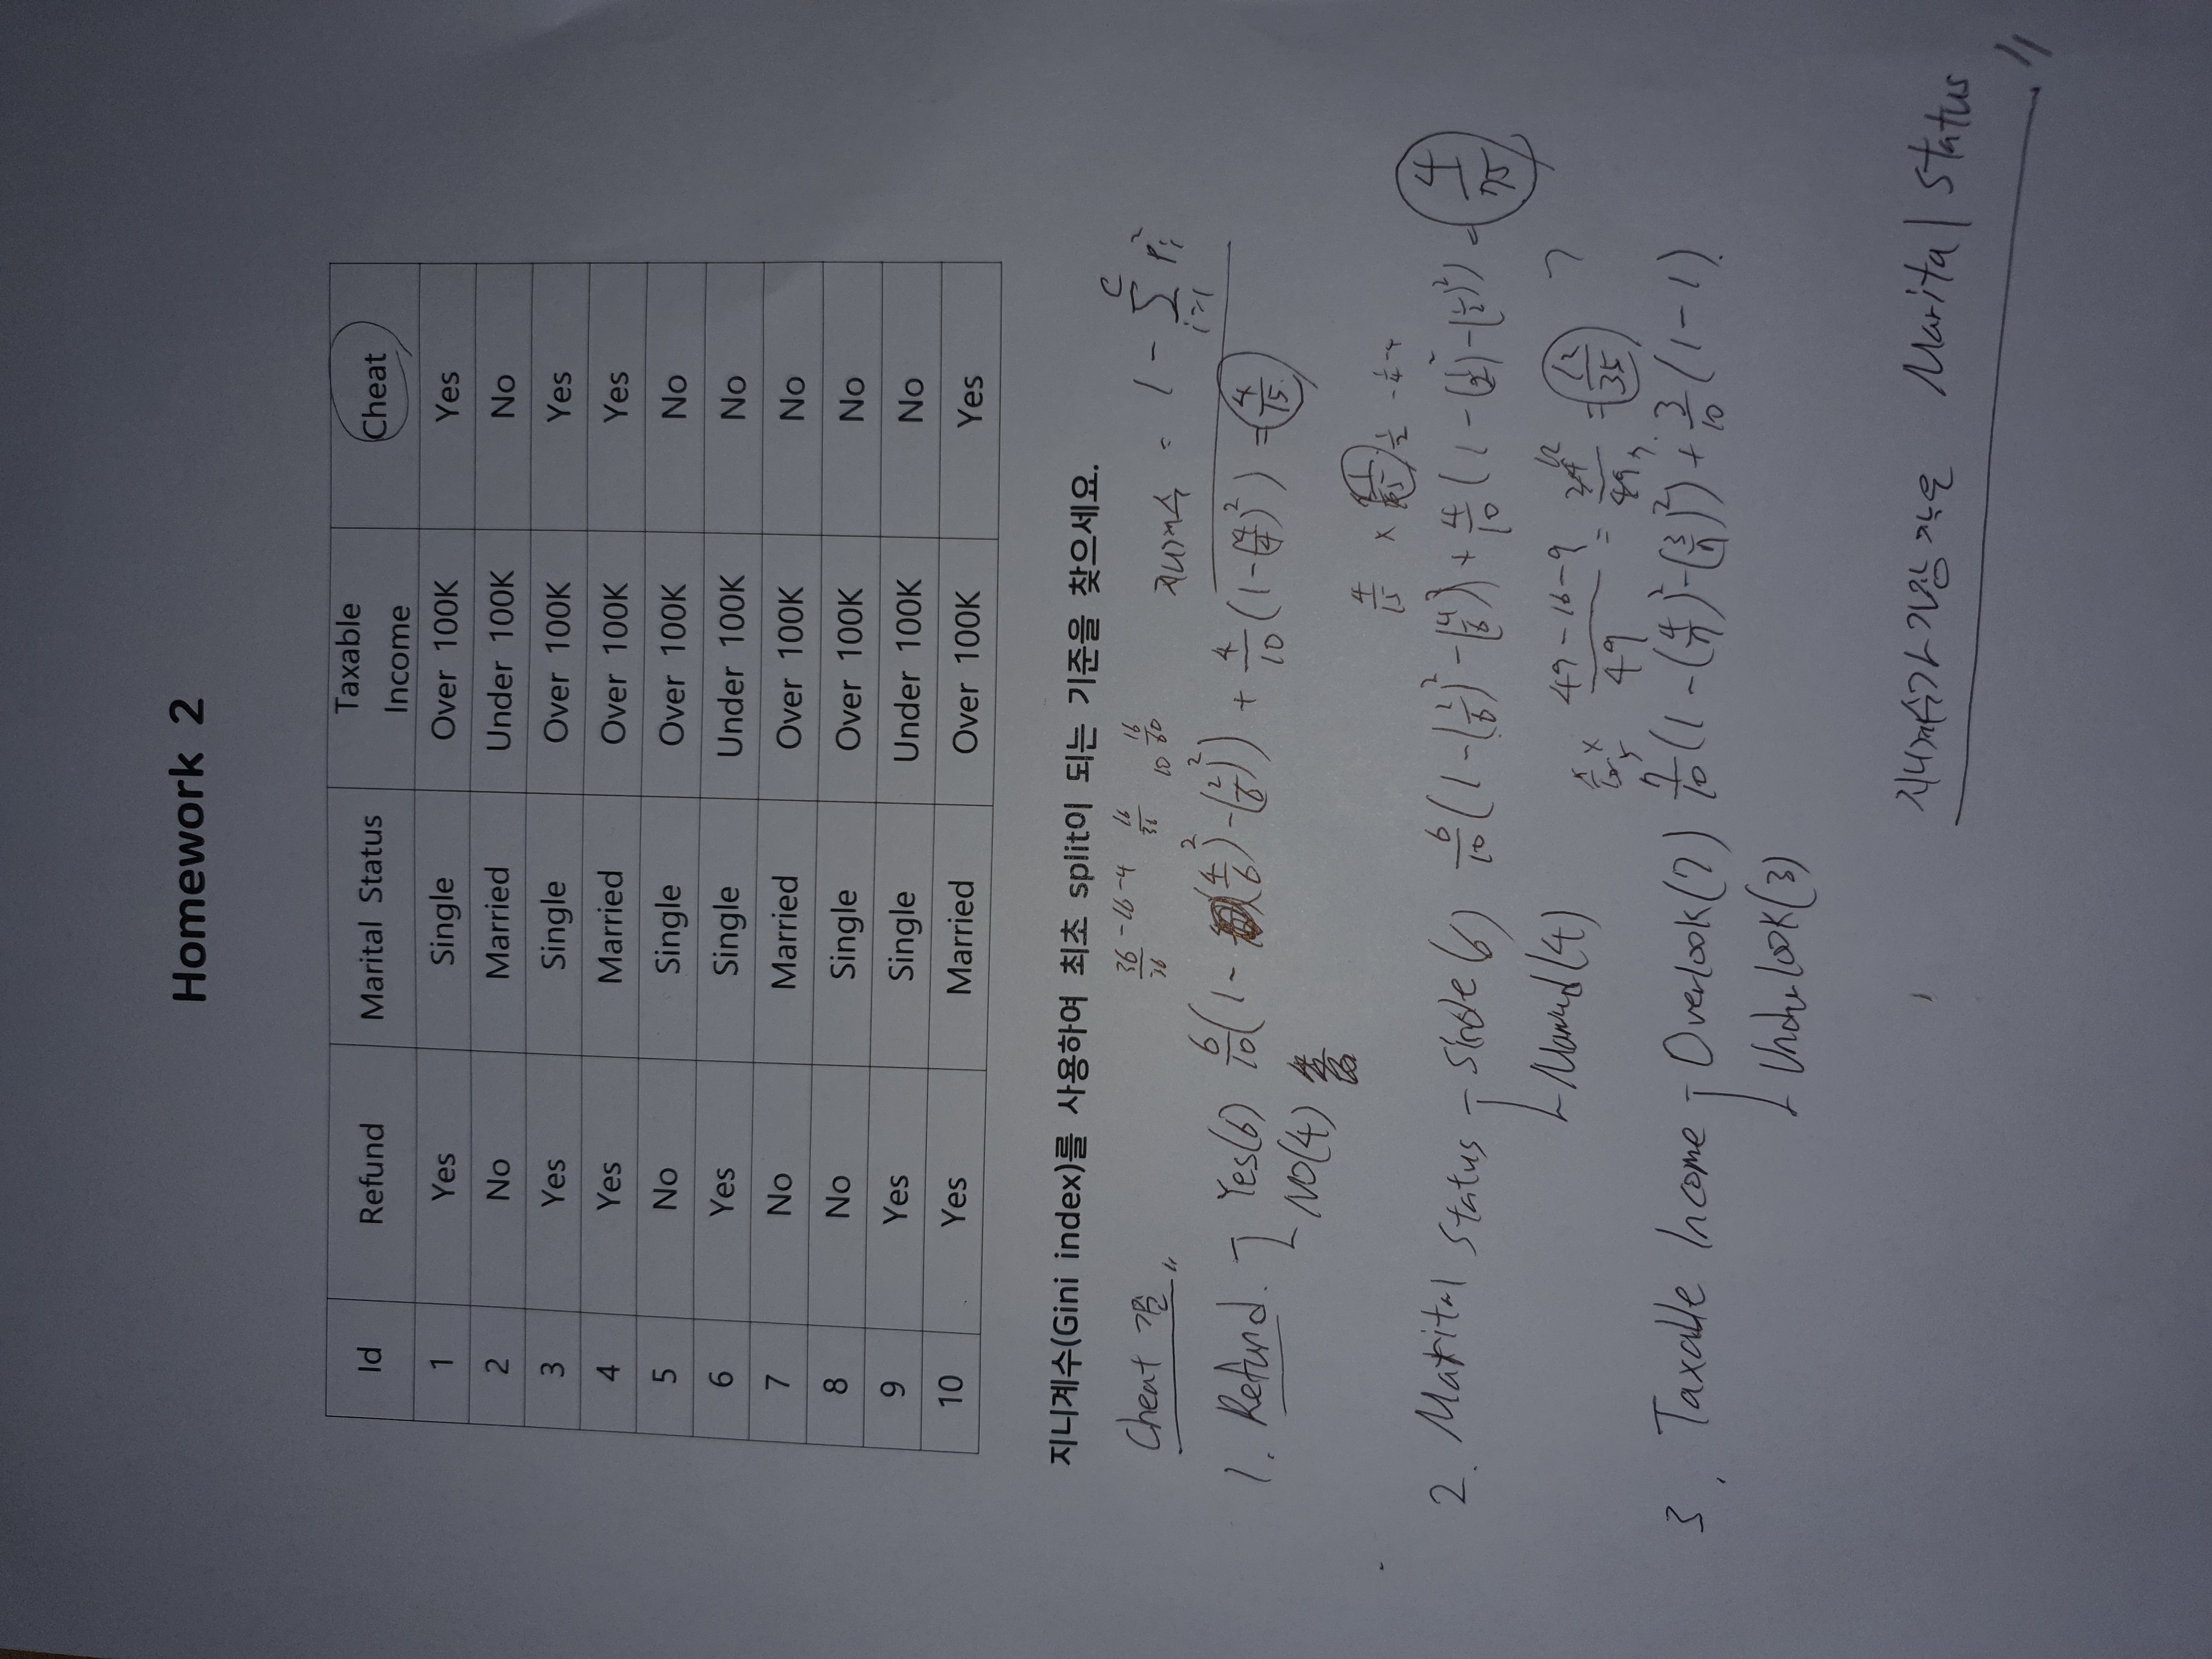 Homework 2
Id Refund Marital Status Taxable Income Cheat
1 Yes Single Over 100K Yes
2 No Married Under 100K No
3 Yes Single Over 100K Yes
4 Yes Married Over 100K Yes
5 No Single Over 100K No
6 Yes Single Under 100K No
7 No Married Over 100K No
8 No Single Over 100K No
9 Yes Single Under 100K No
10 Yes Married Over 100K Yes
지니계수(Gini index)를 사용하여 최초 split이 되는 기준을 찾으세요.
36/36 -16-4 16/36 10 16/60
Cheat 기준 〃
지니계수 = 1 - Σ_{i=1}^{C} Pi²
1. Refund. Yes(6) 6/10(1-(4/6)²-(2/6)²) + 4/10(1-(4/4)²) = 4/15
NO(4)
4/15 × 1/5 1/2 -1/4-
2. Marital Status - Single(6) 6/10(1-(2/6)²-(4/6)²) + 4/10(1-(1/2)²-(1/2)²) = 4/75
Married(4)
49-16-9/49 = 24/49 = 12/35
3. Taxable Income - Over100K(7) 7/10(1-(4/7)²-(3/7)²) + 3/10(1-1).
Under100K(3)
지니계수가 가장 작은 Marital Status 〃